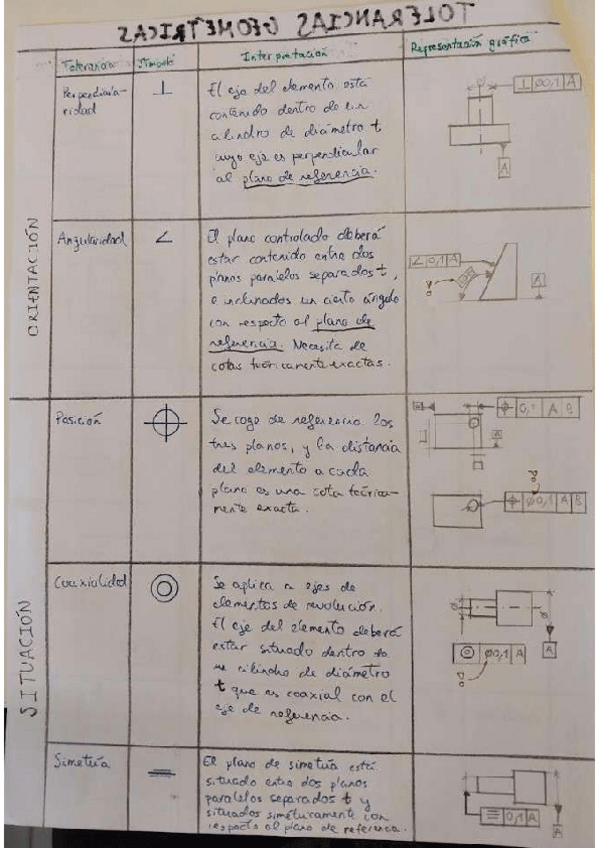 TOLERANCIAS GEOMÉTRICAS
Tolerancia Símbolo Interpretación Representación gráfica
ORIENTACIÓN
Perpendicula-
ridad
⊥
El eje del elemento está
contenido dentro de un
cilindro de diámetro t
cuyo eje es perpendicular
al plano de referencia.
⊥ ⌀0,1 A
A
Angularidad
∠
El plano controlado deberá
estar contenido entre dos
planos paralelos separados t,
e inclinados un cierto ángulo
con respecto al plano de
referencia. Necesita de
cotas teóricamente exactas.
∠ 0,1 A
A
SITUACIÓN
Posición
⌖
Se coge de referencia los
tres planos, y la distancia
del elemento a cada
plano es una cota teórica-
mente exacta.
⌖ 0,1 A B
⌖ ⌀0,1 A B
Coaxialidad
◎
Se aplica a ejes de
elementos de revolución.
El eje del elemento deberá
estar situado dentro de
un cilindro de diámetro
t que es coaxial con el
eje de referencia.
◎ ⌀0,1 A
A
Simetría
⌯
El plano de simetría está
situado entre dos planos
paralelos separados t y
situados simétricamente con
respecto al plano de referencia.
⌯ 0,1 A
A